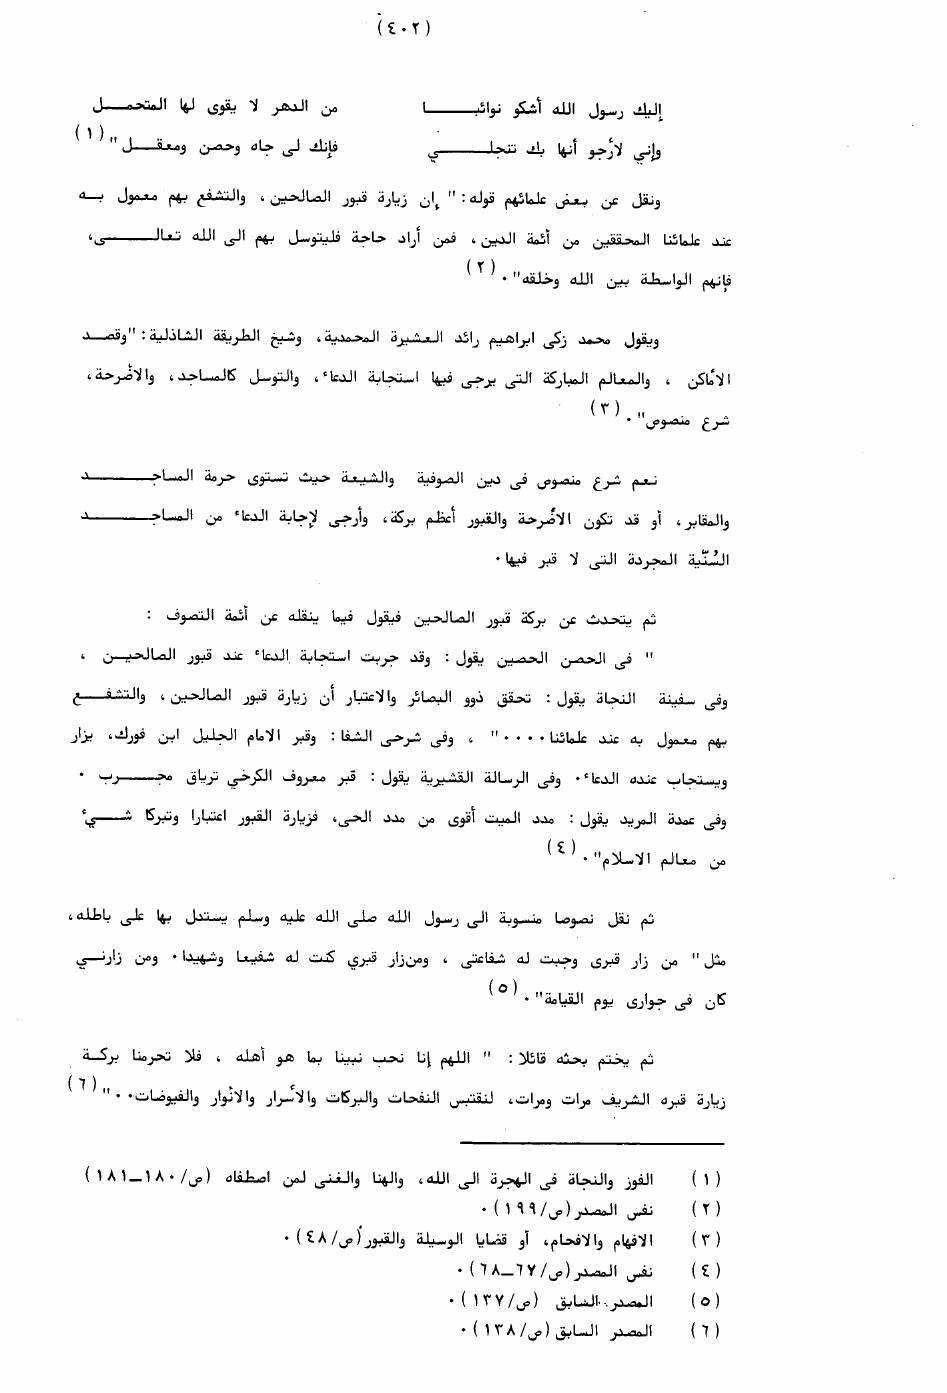 (٤٠٢)
إليك رسول الله أشكو نوائبـــــــا من الدهر لا يقوى لها المتحمــــل
وإني لأرجو أنها بك تنجلـــــــي فإنك لى جاه وحصن ومعقــــل" (١)
ونقل عن بعض علمائهم قوله: " إن زيارة قبور الصالحين، والتشفع بهم معمول بــه
عند علمائنا المحققين من أئمة الدين، فمن أراد حاجة فليتوسل بهم الى الله تعالـــــى،
فإنهم الواسطة بين الله وخلقه". (٢)
ويقول محمد زكى ابراهيم رائد العشيرة المحمدية، وشيخ الطريقة الشاذلية: "وقصــد
الأماكن ، والمعالم المباركة التى يرجى فيها استجابة الدعاء، والتوسل كالمساجد، والأضرحة،
شرع منصوص". (٣)
نعم شرع منصوص فى دين الصوفية والشيعة حيث تستوى حرمة المساجــــــد
والمقابر، أو قد تكون الأضرحة والقبور أعظم بركة، وأرجى لإجابة الدعاء من المساجــــــد
السُّنّية المجردة التى لا قبر فيها.
ثم يتحدث عن بركة قبور الصالحين فيقول فيما ينقله عن أئمة التصوف :
" فى الحصن الحصين يقول : وقد جربت استجابة الدعاء عند قبور الصالحيــن ،
وفى سفينة النجاة يقول : تحقق ذوو البصائر والاعتبار أن زيارة قبور الصالحين، والتشفـــع
بهم معمول به عند علمائنا...." ، وفى شرحى الشفا : وقبر الامام الجليل ابن فورك، يزار
ويستجاب عنده الدعاء. وفى الرسالة القشيرية يقول : قبر معروف الكرخي ترياق مجــــرب .
وفى عمدة المريد يقول : مدد الميت أقوى من مدد الحى، فزيارة القبور اعتبارا وتبركا شـــيء
من معالم الاسلام". (٤)
ثم نقل نصوصا منسوبة الى رسول الله صلى الله عليه وسلم يستدل بها على باطله،
مثل " من زار قبرى وجبت له شفاعتى ، ومن زار قبري كنت له شفيعا وشهيدا. ومن زارنـــي
كان فى جوارى يوم القيامة". (٥)
ثم يختم بحثه قائلا : " اللهم إنا نحب نبينا بما هو أهله ، فلا تحرمنا بركــة
زيارة قبره الشريف مرات ومرات، لنقتبس النفحات والبركات والأسرار والأنوار والفيوضات.." (٦)
(١) الفوز والنجاة فى الهجرة الى الله، والهنا والغنى لمن اصطفاه (ص/١٨٠ــ١٨١)
(٢) نفس المصدر (ص/١٩٩).
(٣) الافهام والافحام، أو قضايا الوسيلة والقبور (ص/٤٨).
(٤) نفس المصدر (ص/٦٧ــ٦٨).
(٥) المصدر السابق (ص/١٣٧).
(٦) المصدر السابق (ص/١٣٨).